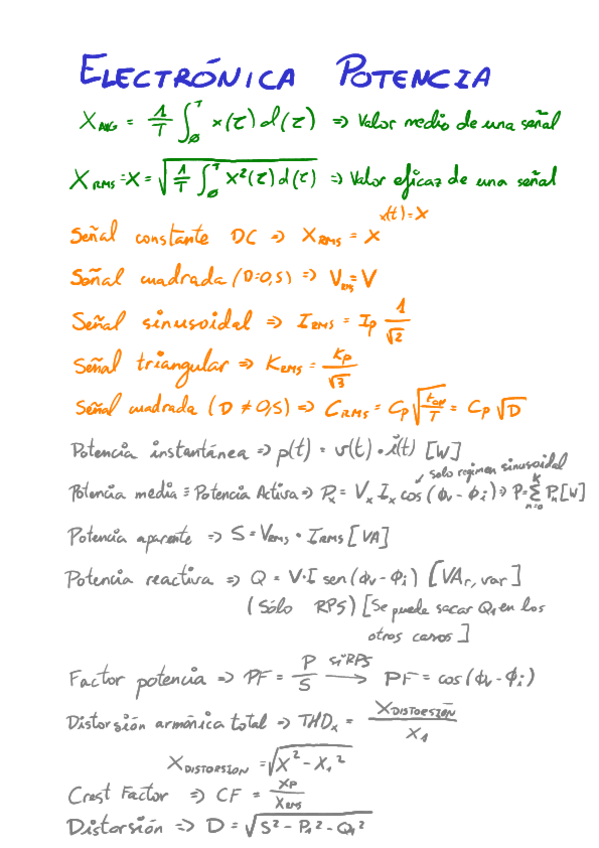 ELECTRÓNICA POTENCIA
X_AVG = 1/T ∫_0^T x(τ) d(τ) => Valor medio de una señal
X_RMS = X = √(1/T ∫_0^T x²(τ) d(τ)) => Valor eficaz de una señal
Señal constante DC => X_RMS = X x(t) = X
Señal cuadrada (D=0,5) => V_RMS = V
Señal sinusoidal => I_RMS = I_p 1/√2
Señal triangular => K_RMS = K_p/√3
Señal cuadrada (D ≠ 0,5) => C_RMS = C_p √(t_ON/T) = C_p √D
Potencia instantánea => p(t) = v(t) · i(t) [W]
↙ Solo regimen sinusoidal
Potencia media ≡ Potencia Activa => P_x = V_x I_x cos(ϕ_v - ϕ_i) => P = Σ_{n=0}^K P_n [W]
Potencia aparente => S = V_RMS · I_RMS [VA]
Potencia reactiva => Q = V·I sen(ϕ_v - ϕ_i) [VAr, var]
(Sólo RPS) [Se puede sacar Q_1 en los
otros casos]
Factor potencia => PF = P/S si RPS → PF = cos(ϕ_v - ϕ_i)
Distorsión armónica total => THD_x = X_DISTORSIÓN / X_1
X_DISTORSION = √(X² - X_1²)
Crest Factor => CF = X_P / X_RMS
Distorsión => D = √(S² - P_1² - Q_1²)